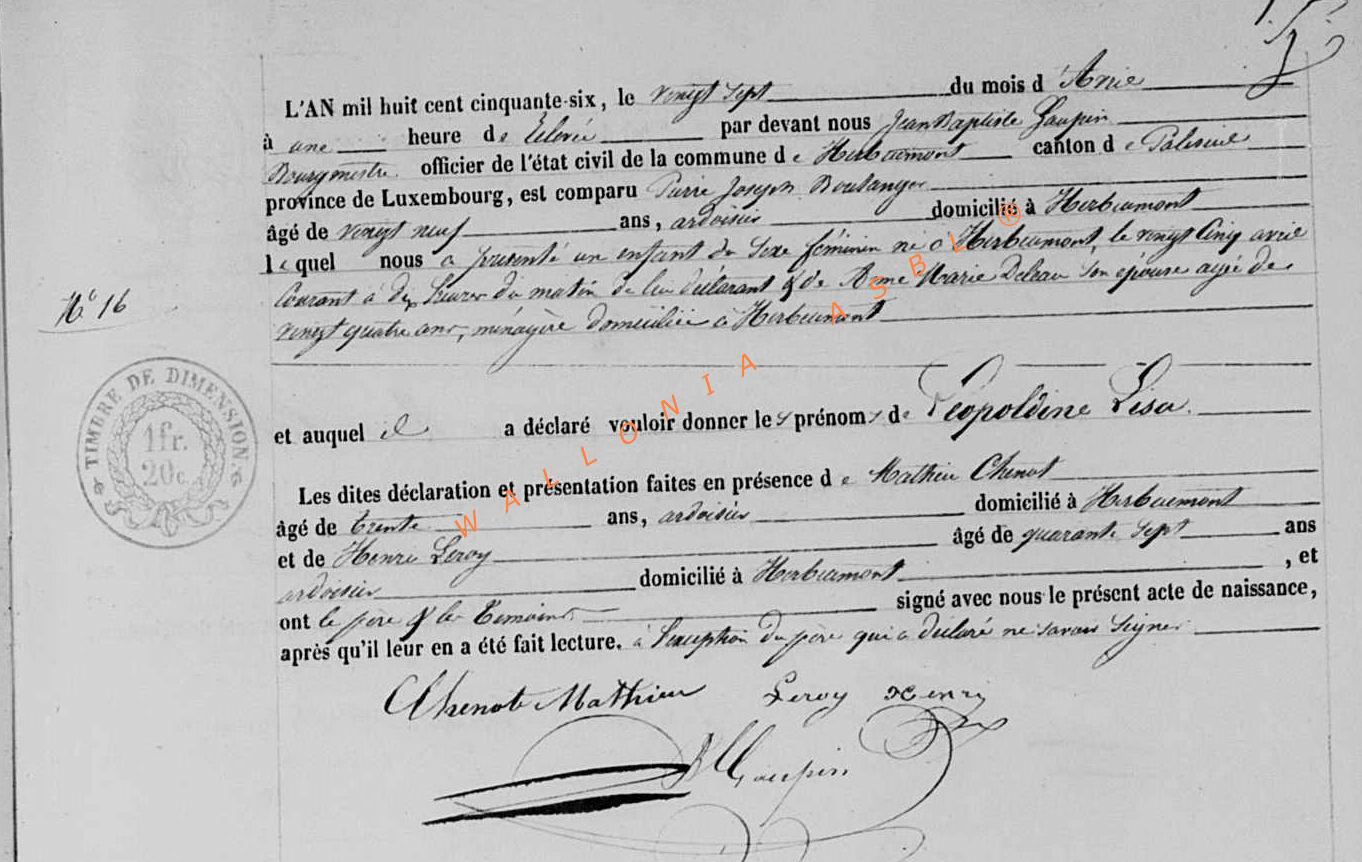 L'AN mil huit cent cinquante-six, le vingt sept du mois d'Avril
à une heure de relevée par devant nous Jean Baptiste Gaupin
Bourgmestre officier de l'état civil de la commune de Herbeumont canton de Paliseul
province de Luxembourg, est comparu Pierre Joseph Boulanger
âgé de vingt neuf ans, ardoisier domicilié à Herbeumont
lequel nous a présenté un enfant du sexe féminin né à Herbeumont, le vingt cinq avril
courant à dix heures du matin de lui déclarant & de Anne Marie Deleau son épouse agée de
vingt quatre ans, ménagère domiciliée à Herbeumont
N° 16
TIMBRE DE DIMENSION
1fr.
20c.
et auquel il a déclaré vouloir donner les prénoms de Léopoldine Lisa.
Les dites déclaration et présentation faites en présence de Mathieu Chenot
âgé de trente ans, ardoisier domicilié à Herbeumont
et de Henri Leroy âgé de quarante sept ans
ardoisier domicilié à Herbeumont, et
ont le père & les témoins signé avec nous le présent acte de naissance,
après qu'il leur en a été fait lecture. à l'exception du père qui a déclaré ne savoir signer
Chenot Mathieu Leroy Henri
Gaupin
WALLONIA ASBL ®